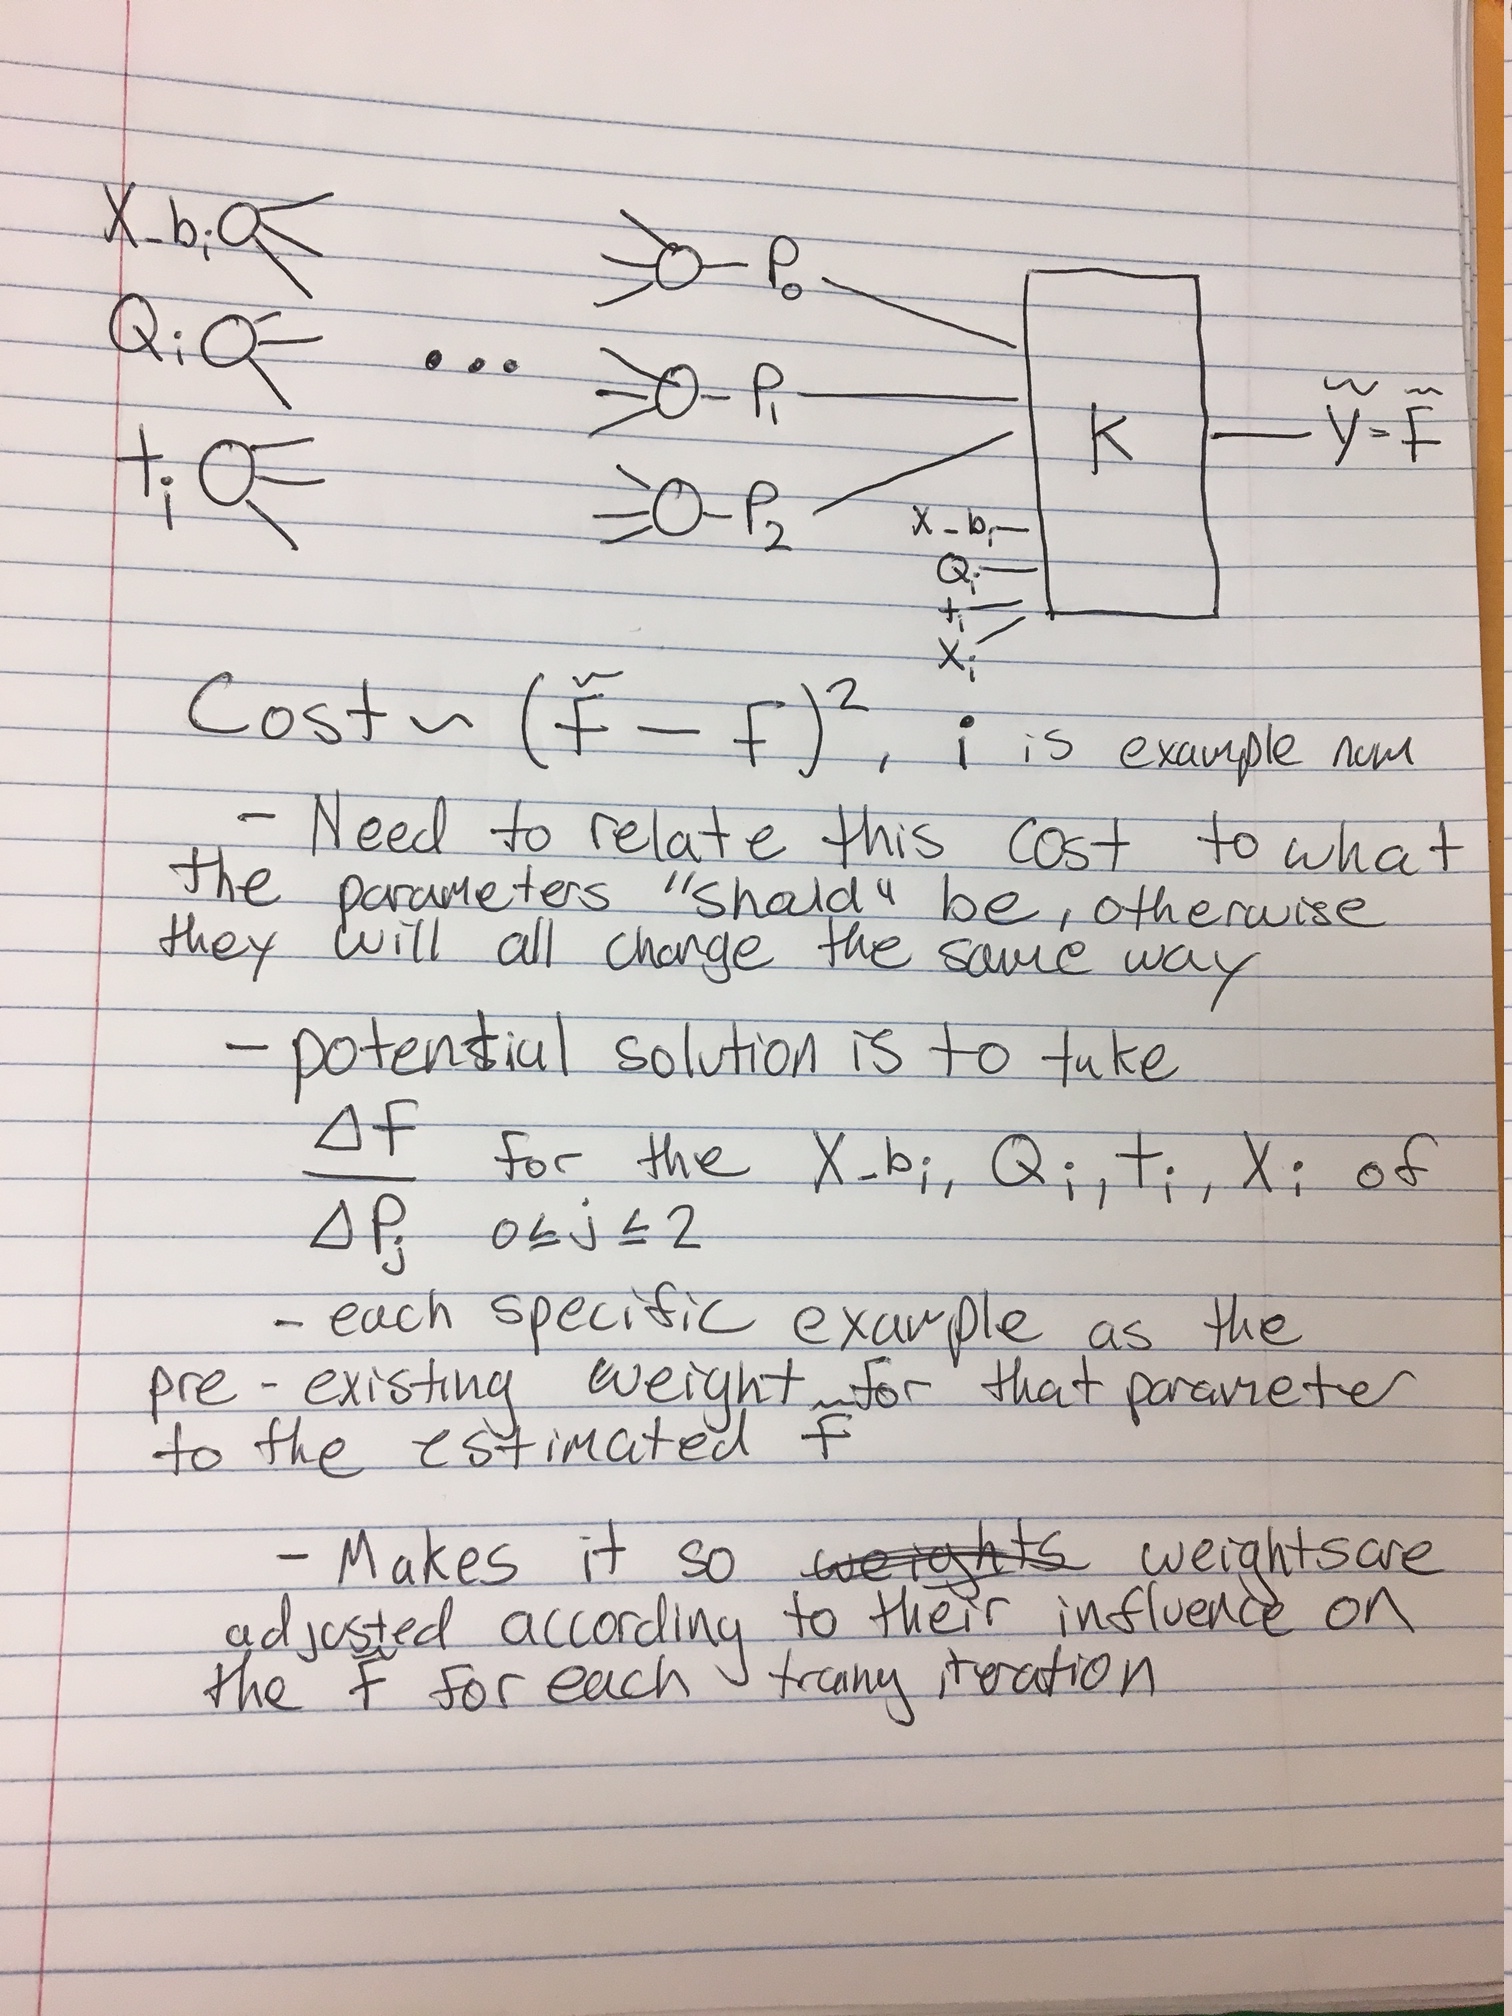 X_bi
P0
Qi
P1
K
ỹ = F̃
ti
P2
X_bi
Qi
ti
Xi
Cost ~ (F̃ − F)², i is example num
- Need to relate this cost to what
the parameters "should" be, otherwise
they will all change the same way
- potential solution is to take
ΔF
for the X_bi, Qi, ti, Xi of
ΔPj 0≤j≤2
- each specific example as the
pre-existing weight for that parameter
to the estimated F̃
- Makes it so weights weights are
adjusted according to their influence on
the F̃ for each iteration